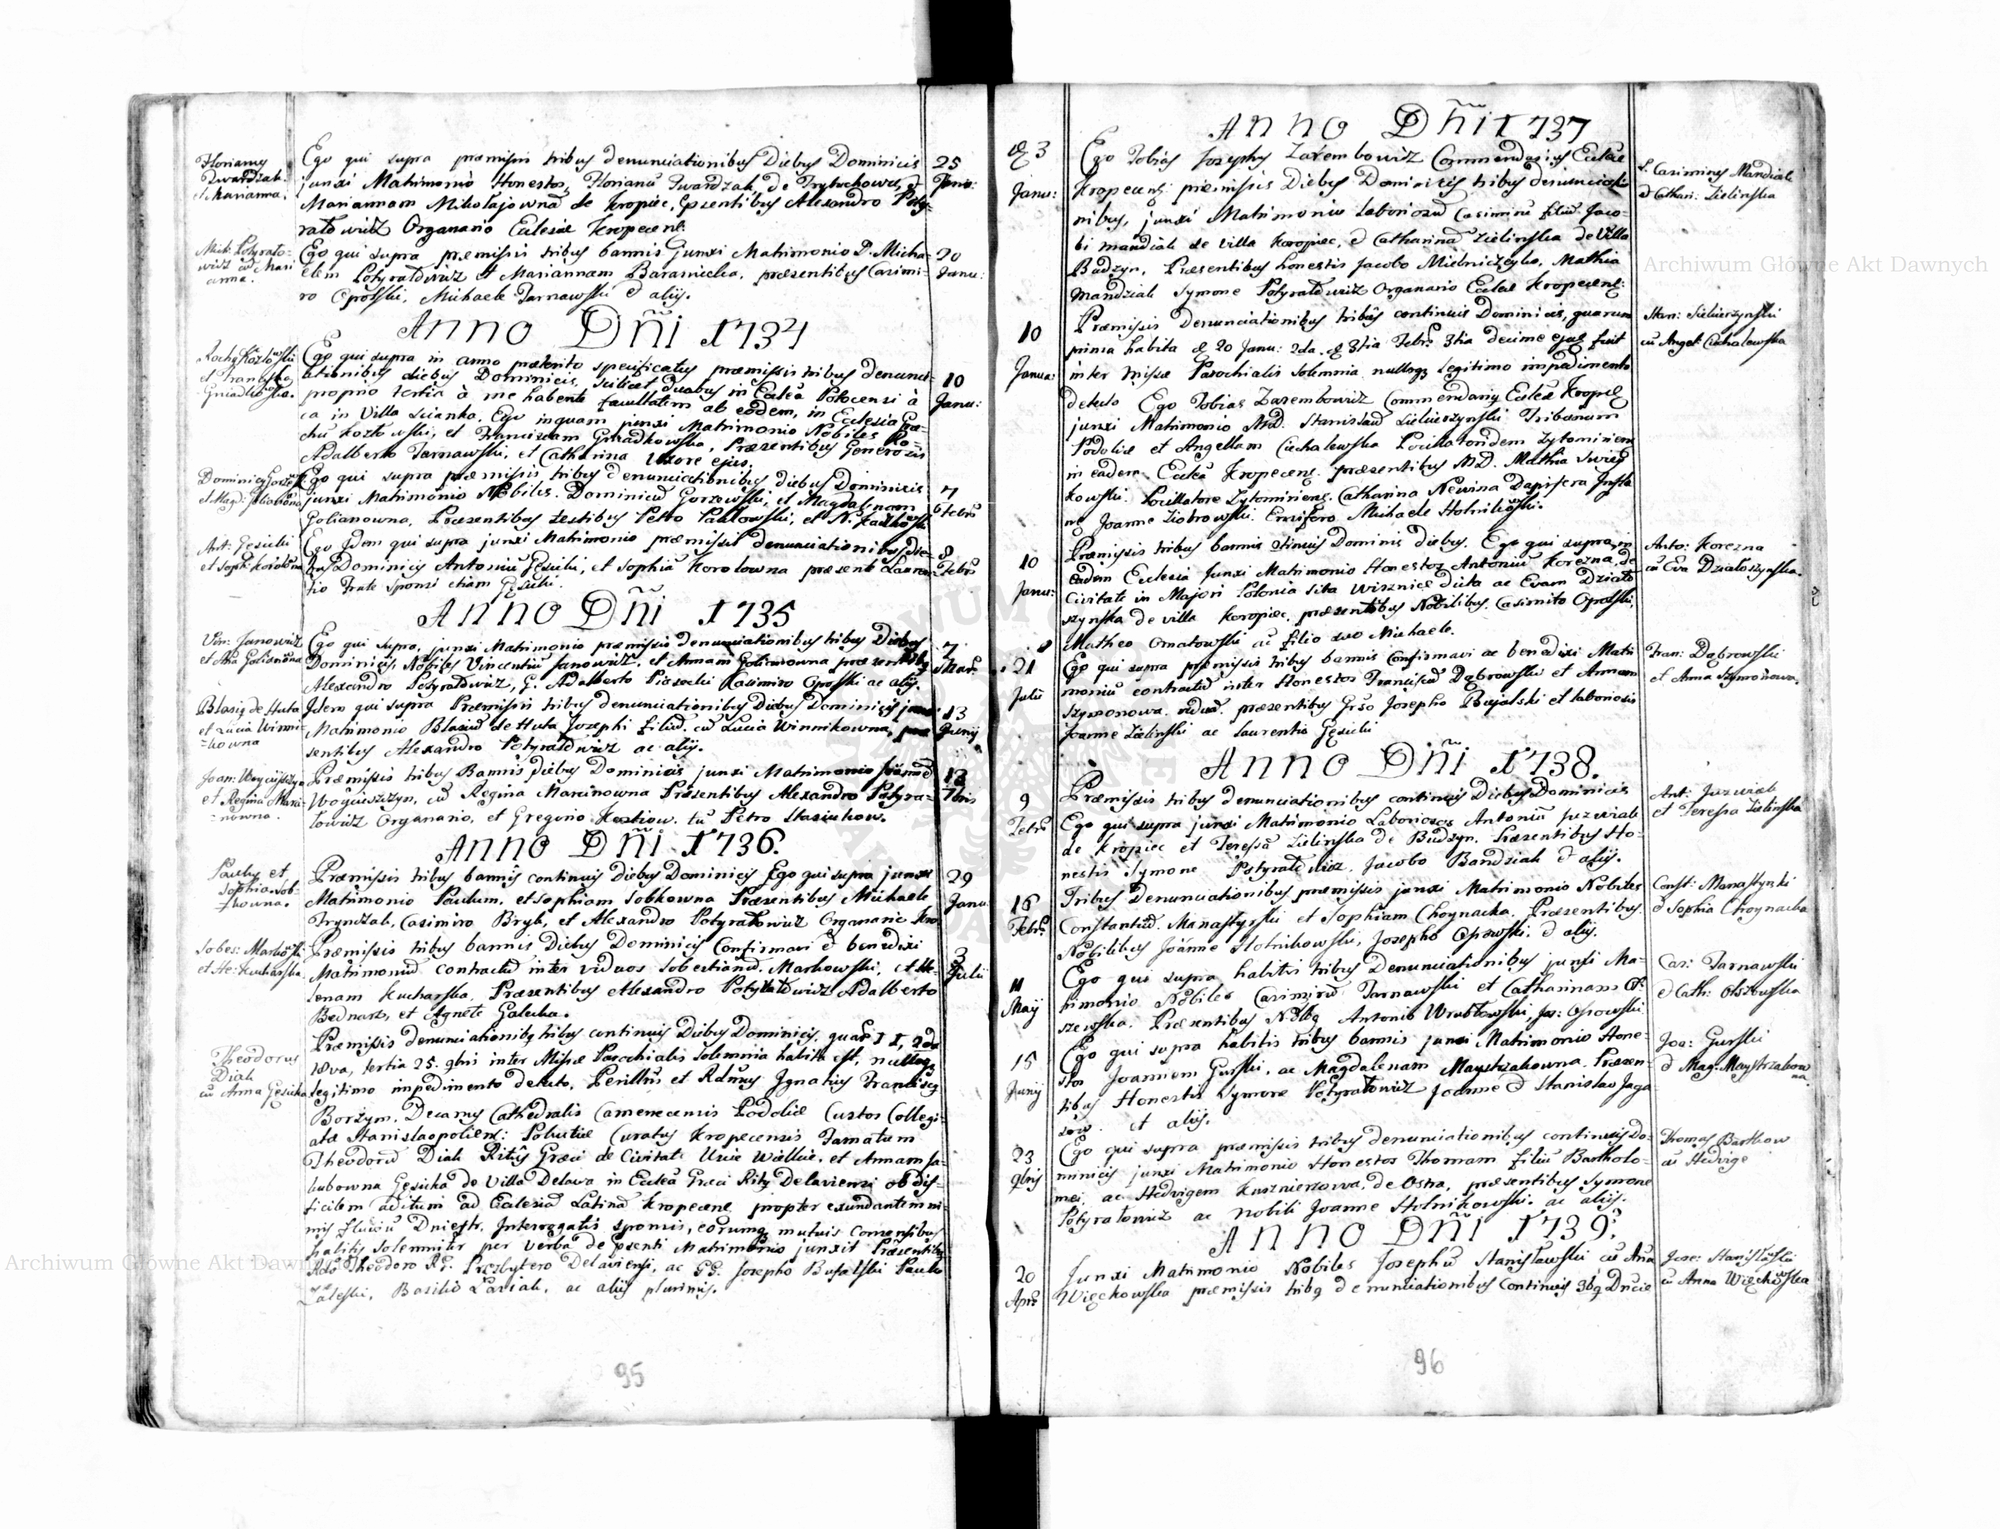 Florianus
Twardzak
et Marianna.
Ego qui supra praemissis tribus denunciationibus Diebus Dominicis
junxi Matrimonio Honestos, Florianū Twardzak, de Trybuchowce, et
Mariannam Mikolajowna de Kropiec, praesentibus Alexandro Poty-
ratowicz Organario Eclesiae Kropecens:
25
Janu:
Mich: Potyrato-
wicz cū Mari
anna.
Ego qui supra praemissis tribus bannis junxi Matrimonio D. Micha-
elem Potyratowicz et Mariannam Baraniecka, praesentibus Casimi-
ro Opolski, Michaele Tarnawski et alijs.
20
Janu:
Anno Dñi 1734
Rochus Kozłowski
et Francisca
Gniadkowska.
Ego qui supra in anno praeterito specificatus praemissis tribus denunci-
ationibus diebus Dominicis, scilicet duabus in Eccla Potocensi à
proprio tertia à me habente facultatem ab eodem, in Ecclesia
ca in Villa Scianka, Ego inquam junxi Matrimonio Nobiles Ro-
chū Kozłowski, et Franciscam Gniadkowska, Praesentibus Generosis
Adalberto Tarnawski, et Catharina Uxore ejus.
10
Janu:
Dominicus Gorzewski
et Magd: Golianowna
Ego qui supra praemissis tribus denunciationibus diebus Dominicis
junxi Matrimonio Nobiles Dominicū Gorzewski, et Magdalenam
Golianowna, Praesentibus testibus Petro Pawłowski, et N.
7
Febru
Ant: Gęsicki
et Soph: Korolowna
Ego Idem qui supra junxi Matrimonio praemissis denunciationibus die-
bus Dominicis Antoniū Gęsicki, et Sophia Korolowna praesent: Lauren-
tio Frate Sponsi etiam Gęsicki.
8
Febru
Anno Dñi 1735
Vin: Janowicz
et Ana Golianowna
Ego qui supra, junxi Matrimonio praemissis denunciationibus tribus Diebus
Dominicis, Nobiles Vincentiū Janowicz, et Annam Golianowna praesentibus
Alexandro Potyratowicz, G. Adalberto Piasecki Casimiro Opolski ac alijs.
7
Mar:
Blasius de Huta
et Lucia Winni-
kowna
Idem qui supra Praemissis tribus denunciationibus Diebus Dominicis junxi
Matrimonio Blasiū de Huta Josephi filiū, cū Lucia Winnikowna, prae
sentibus Alexandro Potyratowicz ac alijs.
13
Junij
Joan: Woyciszczyn
et Regina Marci-
nowna.
Praemissis tribus Bannis Diebus Dominicis junxi Matrimonio Joannē
Woyciszczyn, cū Regina Marcinowna Praesentibus Alexandro Potyra-
towicz Organario, et Gregorio Kostiow, tū Petro Stasiukow.
12
7bris
Anno Dñi 1736.
Paulus et
Sophia Sob-
kowna.
Praemissis tribus bannis continuis Diebus Dominicis Ego qui supra junxi
Matrimonio Paulum, et Sophiam Sobkowna Praesentibus Michaele
Tryndzak, Casimiro Bryk, et Alexandro Potyratowicz Organario Kro
29
Janu:
Sobes: Markowski
et He: Kucharska
Praemissis tribus bannis Diebus Dominicis Confirmavi et benedixi
Matrimoniū contractū inter viduos Sobestianū Markowski, et He-
lenam Kucharska, Praesentibus Alexandro Potyratowicz Adalberto
Bednarz, et Agnete Galecka.
3
Julii
Theodorus
Diak
cū Anna Gęsicka
Praemissis denunciationibq tribus continuis Diebus Dominicis, quar 1 1, 2da
18va, tertia 25. 9bri inter Missae Parochialis solemnia habita est, nulloq
legitimo impedimento detecto, Perillris et Rdmus Ignatius Franciscq
Borzym, Decanus Cathedralis Camenecensis Podoliae Custos Collegi-
atae Stanislaopoliens: Pokutiae Curatus Kropecensis Famatum
Theodorū Diak Ritūs Graeci de Civitate Uscie Wielkie, et Annam Ja-
kubowna Gęsicka de Villa Delawa in Eccla Graeci Ritq Delaviensi ob dif-
ficilem aditum ad Ecclesiā Latinā Kropecens propter exundantem ni-
mis fluviū Dniestr, Interrogatis sponsis, eorumq mutuis Consensibus
habitis solemniter per verba de praesenti Matrimonio junxit Praesentibus
Rdo Theodoro RG. Presbytero Delaviensi, ac GG. Josepho Bukalski Paulo
Zaleski, Basilio Laviak, ac alijs plurimis.
95
Anno Dñi 1737
et 3
Janu:
Ego Tobias Josephus Zarembowicz Commendarius Ecclae
Kropecens: praemissis Diebus Dominicis tribus denunciatio
nibus, junxi Matrimonio Laboriosū Casimirū filiū Jaco-
bi Mandziak de villa Koropiec, et Catharinā Zielinska de Villa
Budzyn, Praesentibus honestis Jacobo Mielniczeyko, Mathia
Mandziak Symone Potyratowicz Organario Ecclae Kropecens:
L. Casimirus Mandziak
et Cathari: Zielinska
10
Janua:
Praemissis denunciationibus tribus continuis Dominicis, quarum
prima habita et 20 Janu: 2da et 3tia Febru: 3tia decima ejus fuit
inter Missae Parochialis solemnia nulloq legitimo impedimento
detecto Ego Tobias Zarembowicz Commendarius Ecclae Kropec
junxi Matrimonio MD. Stanislaū Sielierzynski Tribunum
Podoliae et Angellam Ciechalewska Pocillatoridem Zytomiriens
in eadem Eccla Kropecens: praesentibus MD. Mathia Swier
kowski Pocillatore Zytomiriens, Catharina Newina Dapifera
ne Joanne Ziobrowski Ensifero, Michaele Hotnikowski.
Stan: Sielierzynski
cū Angel: Ciechalewska
10
Janu:
Praemissis tribus bannis continuis Dominicis diebus, Ego qui supra, in
eadem Ecclesia junxi Matrimonio Honestos Antoniū Korezna, de
Civitate in Majori Polonia sita Wisznice dicta ac Evam Działo
szynska de villa Koropiec, praesentibus Nobilibus Casimiro Opolski,
Matheo Ornatowski ac filio suo Michaele.
Anto: Korezna
cū Eva Działoszynska.
21
Julii
Ego qui supra praemissis tribus bannis Confirmavi ac benedixi Matri
moniū contractū inter Honestos Franciscū Dąbrowski et Annam
Szymonowa, viduā, praesentibus Grso Josepho Bujalski et laboriosis
Joanne Zielinski ac Laurentio Gęsicki
Fran: Dąbrowski
et Anna Szymonowa.
Anno Dñi 1738.
9
Febru:
Praemissis tribus denunciationibus continuis Diebus Dominicis
Ego qui supra junxi Matrimonio Laboriosos Antoniū Juzwiak
de Kropiec et Teressā Zielinska de Budzyn, Praesentibus Ho-
nestis Symone Potyratowicz, Jacobo Bandziak et alijs.
Ant: Juzwiak
et Teressa Zielinska
16
Febru:
Tribus Denunciationibus praemissis junxi Matrimonio Nobiles
Constantiū Manastyrski et Sophiam Choynacka, Praesentibus
Nobilibus Joanne Hotnikowski, Josepho Opowski, et alijs.
Const: Manastyrski
et Sophia Choynacka
11
Maij
Ego qui supra habitis tribus Denunciationibus junxi Ma-
trimonio Nobiles Casimirū Tarnawski et Catharinam Ol-
szewska, Praesentibus Nblbq Antonio Wrublowski, Jos: Opowski
Cas: Tarnawski
et Cath: Olszewska
15
Junij
Ego qui supra habitis tribus bannis junxi Matrimonio Hone-
stos Joannem Gurski, ac Magdalenam Maystrzakowna, Praesen-
tibus Honestis Symone Potyratowicz Joanne et Stanislao Jaga
zow et alijs.
Joa: Gurski
et Mag: Maystrzakow
na.
23
9bris
Ego qui supra praemissis tribus denunciationibus continuis Do-
minicis junxi Matrimonio Honestos Thomam filiū Bartholo-
mei, ac Hedvigem Kusznierzowa, de Ostra, praesentibus Symone
Potyratowicz ac Nobili Joanne Hotnikowski ac alijs.
Thomas Bartkow
cū Hedvige
Anno Dñi 1739.
20
Apr:
Junxi Matrimonio Nobiles Josephū Stanisławski cū Ana
Więckowska praemissis tribq denunciationibus Continuis 3bq Dncis
Jose: Stanisławski
cū Anna Więckowska
96
Archiwum Główne Akt Dawnych
Archiwum Główne Akt Dawnych